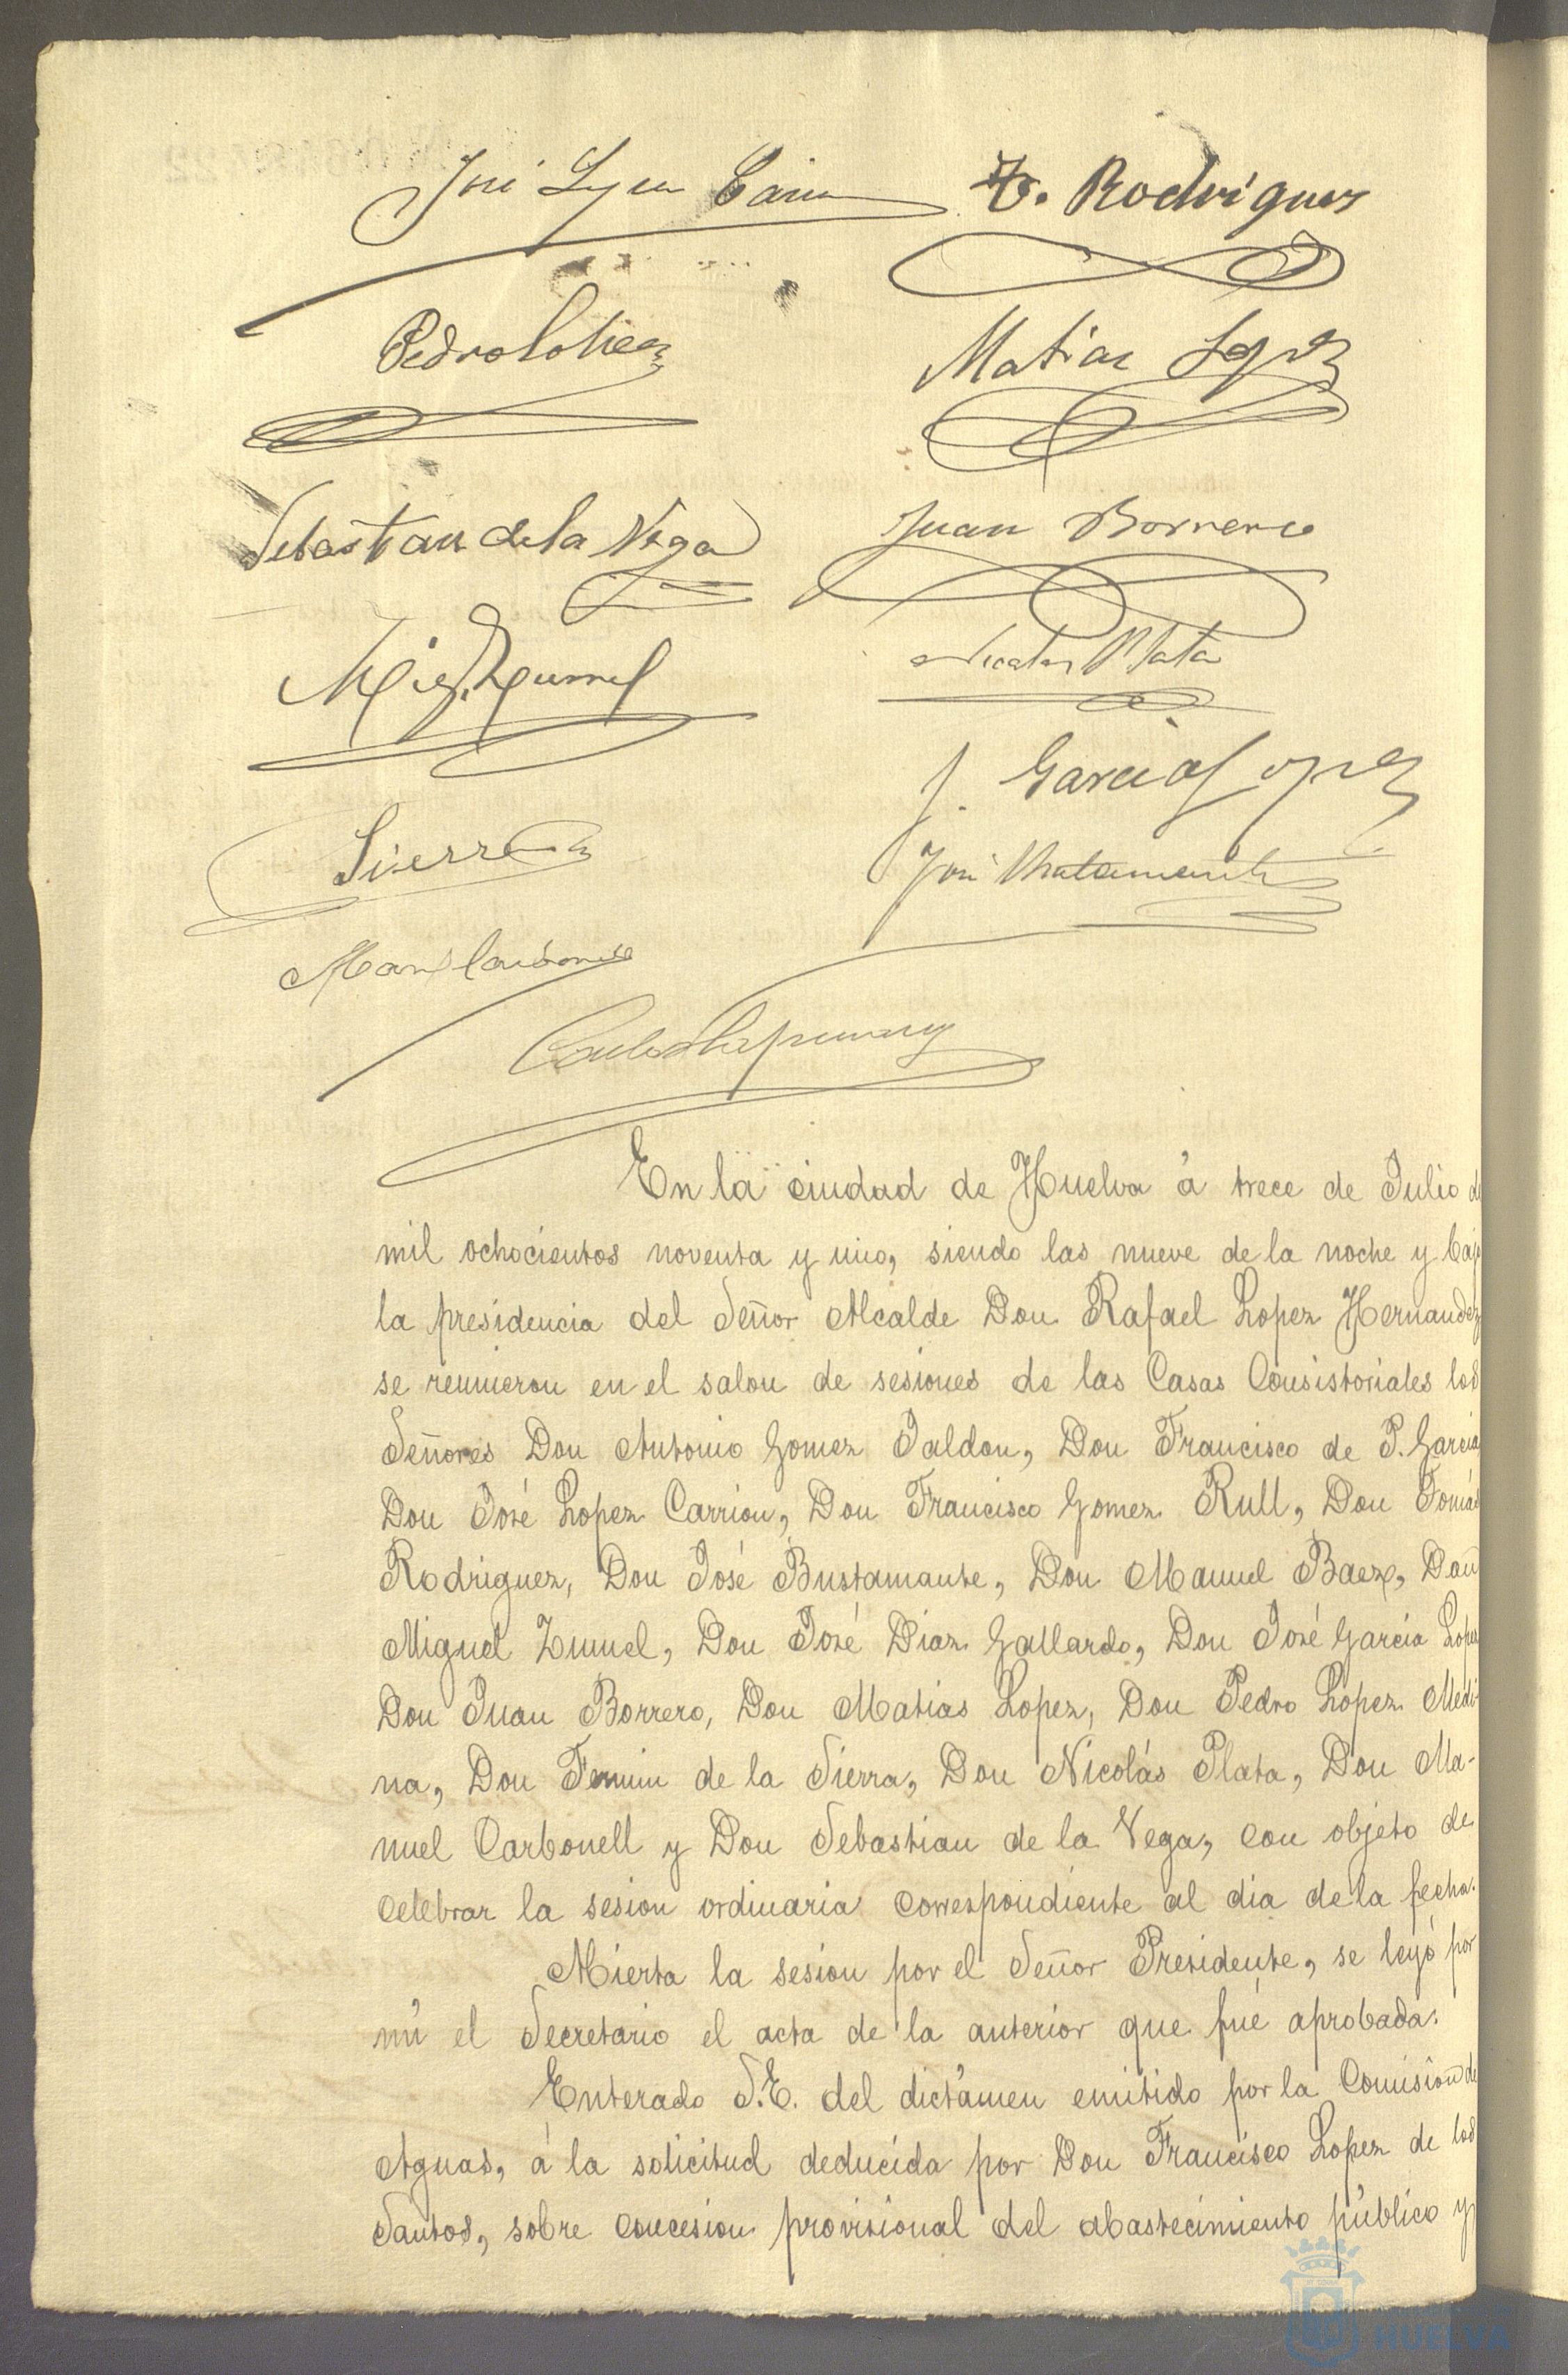 José Lopez Carrion
T. Rodriguez
Pedro Lopez
Matias Lopez
Sebastian de la Vega
Juan Borrero
Mig. Zumel
Nicolas Plata
J. Garcia Lopez
Sierra
José Bustamante
Man. Carbonell
En la ciudad de Huelva á trece de Julio de
mil ochocientos noventa y uno, siendo las nueve de la noche y bajo
la presidencia del Señor Alcalde Don Rafael Lopez Hernandez
se reunieron en el salon de sesiones de las Casas Consistoriales los
Señores Don Antonio Gomez Jaldon, Don Francisco de P. Garcia
Don José Lopez Carrion, Don Francisco Gomez Rull, Don Tomás
Rodriguez, Don José Bustamante, Don Manuel Baez, Don
Miguel Zumel, Don José Diaz Gallardo, Don José Garcia Lopez
Don Juan Borrero, Don Matias Lopez, Don Pedro Lopez Medi-
na, Don Fermin de la Sierra, Don Nicolás Plata, Don Ma-
nuel Carbonell y Don Sebastian de la Vega, con objeto de
celebrar la sesion ordinaria correspondiente al dia de la fecha.
Abierta la sesion por el Señor Presidente, se leyó por
mi el Secretario el acta de la anterior que fué aprobada.
Enterado S.E. del dictámen emitido por la Comision de
Aguas, á la solicitud deducida por Don Francisco Lopez de los
Santos, sobre concesion provisional del abastecimiento público y
HUELVA